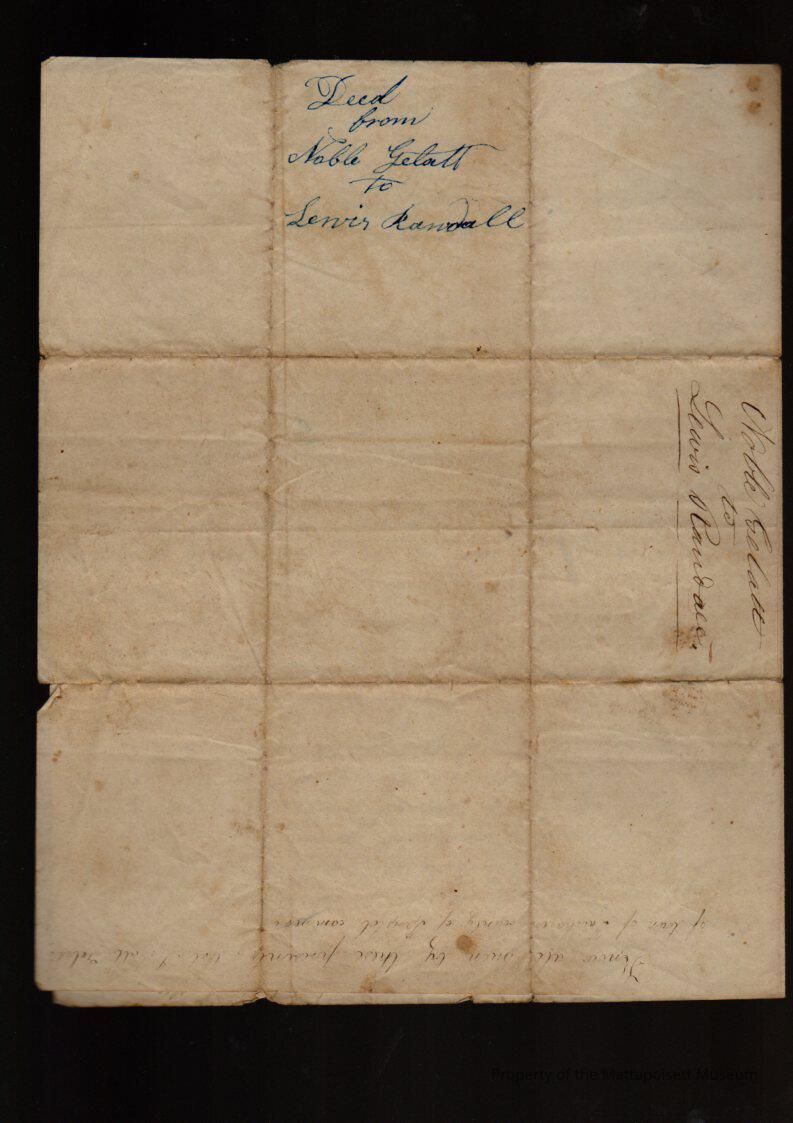 Deed
from
Noble Gelatt
to
Lewis Randall
Noble Gelatt
to
Lewis Randall
Know all men by these presents that I
of town of county of
Property of the Mattapoisett Museum